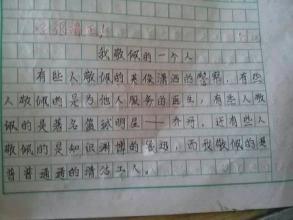 我敬佩的一个人
有些人敬佩的英俊潇洒的警察，有些
人敬佩的是为他人服务的医生，有些人敬
佩的是著名篮球明星——乔丹。还有些人
敬佩的是知识渊博的爸爸，而我敬佩的是
普普通通的清洁工人。